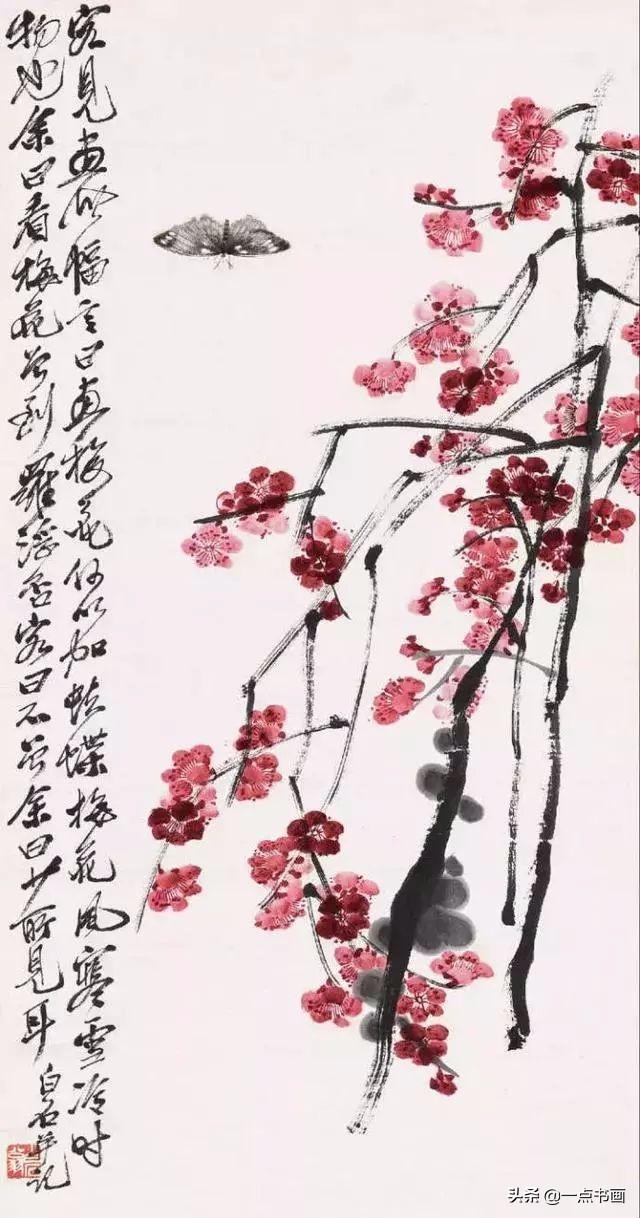 客見畫此幅言曰畫梅花何以加蛺蝶梅花風寒雪冷時
物也余曰看梅花曾到羅浮否客曰不曾余曰少所見耳
白石并記
头条 @一点书画